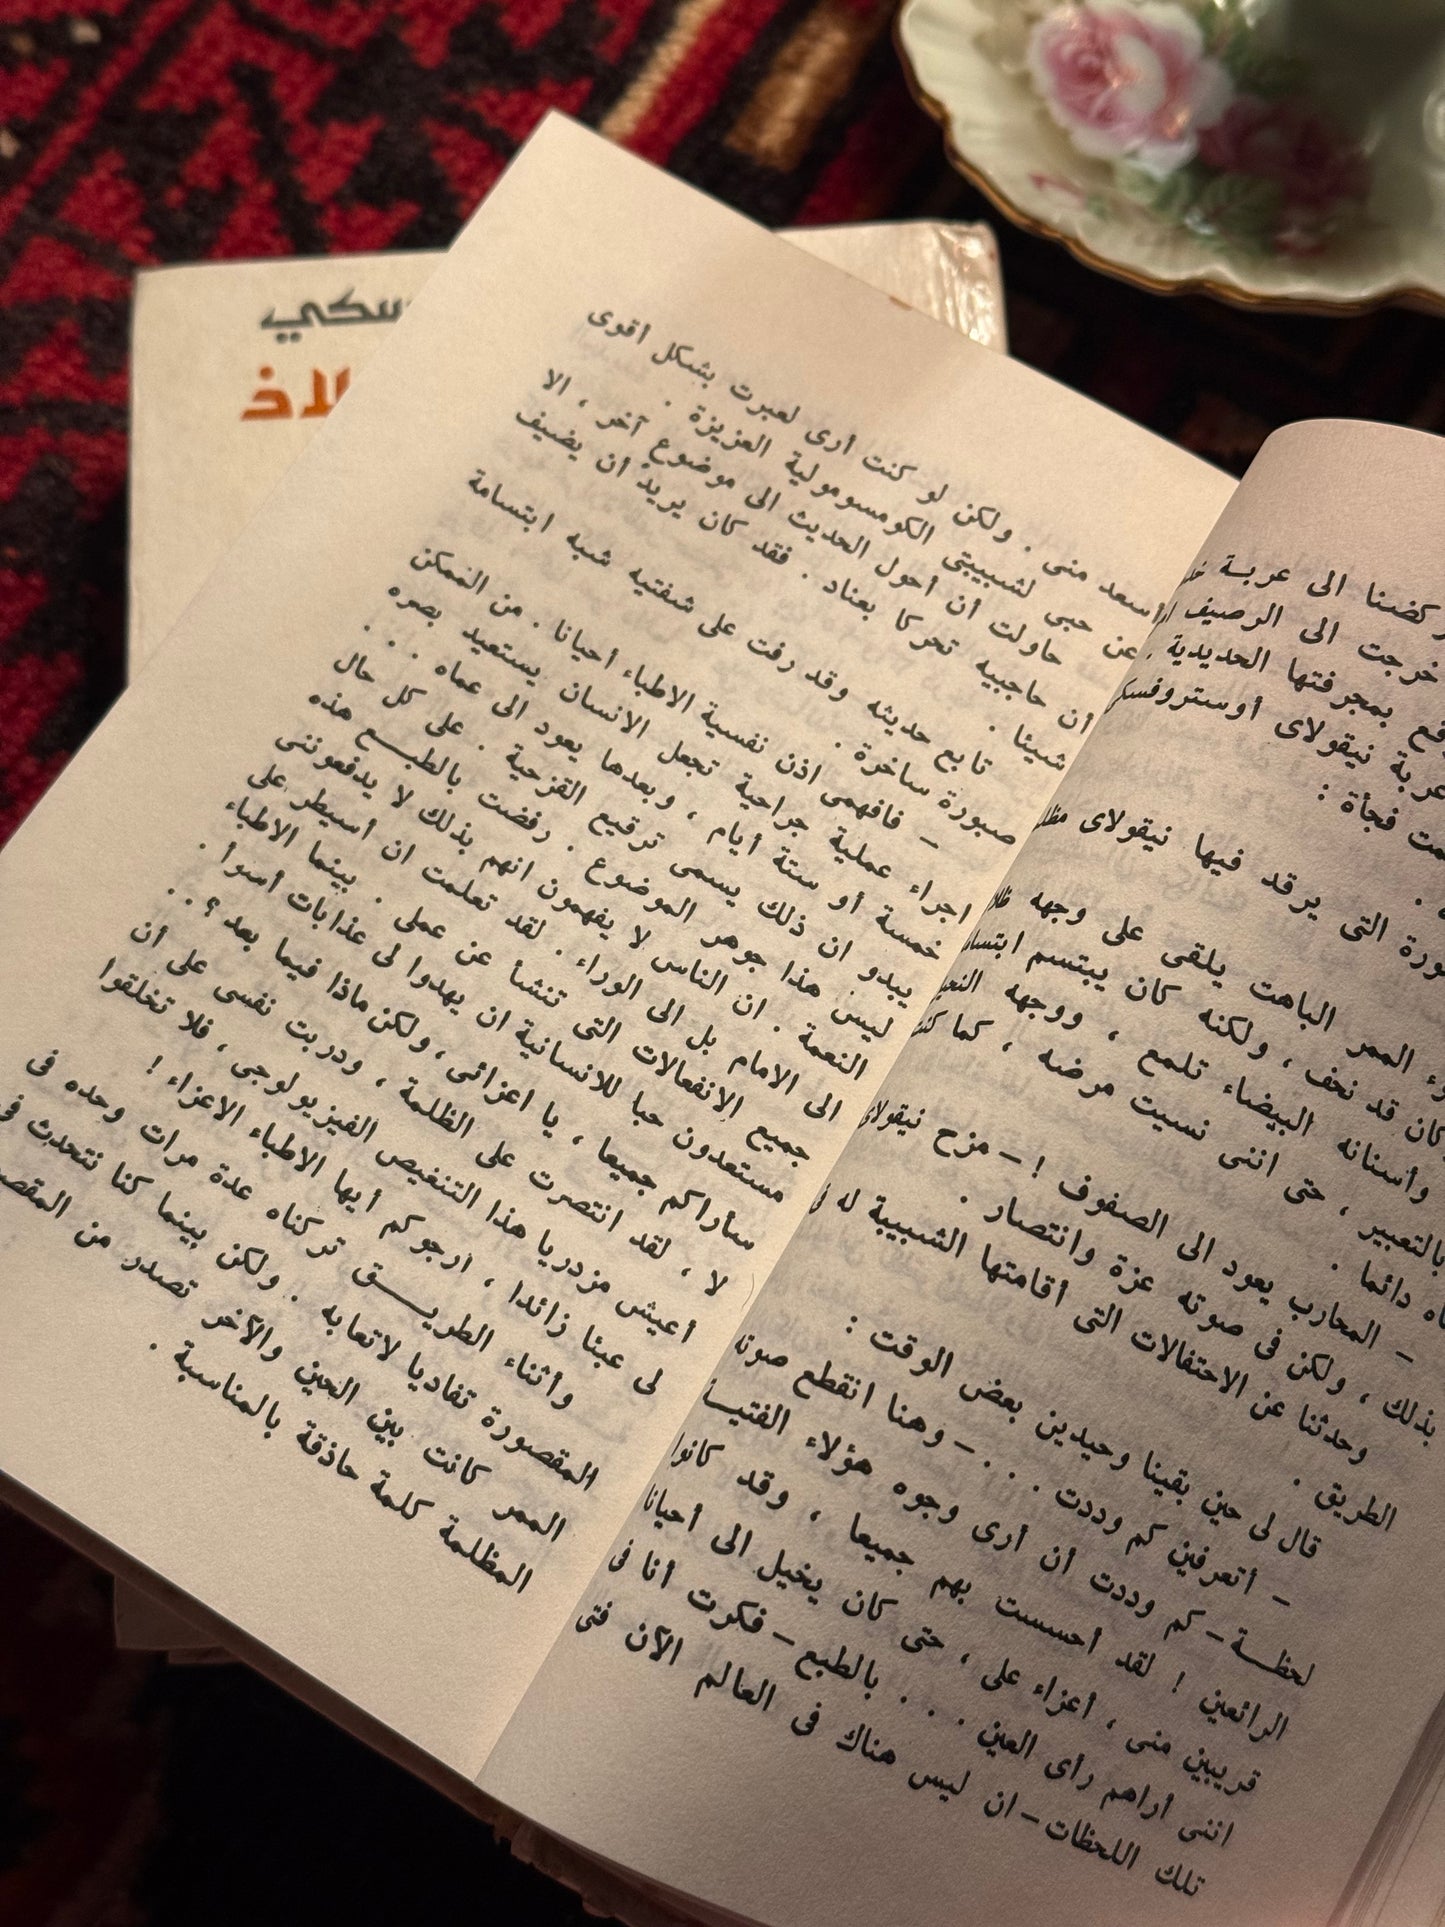 ركضنا الى عربة
خرجت الى الرصيف
بمجرفتها الحديدية
عربة نيقولاى أوستروفسكى
فجأة :
التى يرقد فيها نيقولاى
الممر الباهت يلقى على وجهه
كان قد نحف ، ولكنه كان يبتسم
وأسنانه البيضاء تلمع ، ووجهه
بالتعبير ، حتى اننى نسيت مرضه ، كما كنت
دائما .
– المحارب يعود الى الصفوف ! – مزح نيقولاى
بذلك ، ولكن فى صوته عزة وانتصار .
وحدثنا عن الاحتفالات التى أقامتها الشبيبة له فى
الطريق .
قال لى حين بقينا وحيدين بعض الوقت :
– أتعرفين كم وددت . . . – وهنا انقطع صوته
لحظـة – كم وددت أن أرى وجوه هؤلاء
الرائعين ! لقد أحسست بهم جميعا ، وقد كانوا
قريبين منى ، أعزاء على ، حتى كان يخيل الى أحيانا
اننى أراهم رأى العين . . . بالطبع – فكرت أنا فى
تلك اللحظات – ان ليس هناك فى العالم الآن فتى
أسعد منى . ولكن لو كنت أرى لعبرت بشكل أقوى
عن حبى لشبيبتى الكومسومولية العزيزة .
حاولت أن أحول الحديث الى موضوع آخر ، الا
أن حاجبيه تحركا بعناد . فقد كان يريد أن يضيف
شيئا .
تابع حديثه وقد رفت على شفتيه شبه ابتسامة
صبورة ساخرة .
– فافهمى اذن نفسية الاطباء أحيانا . من الممكن
اجراء عملية جراحية تجعل الانسان يستعيد بصره
خمسة أو ستة أيام ، وبعدها يعود الى عماه . . .
يبدو ان ذلك يسمى ترقيع القزحية . على كل حال
ليس هذا جوهر الموضوع . رفضت بالطبـع هذه
النعمة . ان الناس لا يفهمون انهم بذلك لا يدفعوننى
الى الامام بل الى الوراء . لقد تعلمت ان أسيطر على
جميع الانفعالات التى تنشأ عن عملى . بينما الاطباء
مستعدون حبا للانسانية ان يهدوا لى عذابات أسوأ .
سأراكم جميعا ، يا اعزائى ، ولكن ماذا فيما بعد ؟ . .
لا ، لقد انتصرت على الظلمة ، ودربت نفسى على أن
أعيش مزدريا هذا التنغيص الفيزيولوجى ، فلا تخلقوا
لى عبئا زائدا ، أرجوكم أيها الاطباء الاعزاء !
وأثناء الطريـــق تركناه عدة مرات وحده فى
المقصورة تفاديا لاتعابه . ولكن بينما كنا نتحدث فى
الممر كانت بين الحين والآخر تصدر من
المظلمة كلمة حاذقة بالمناسبة .